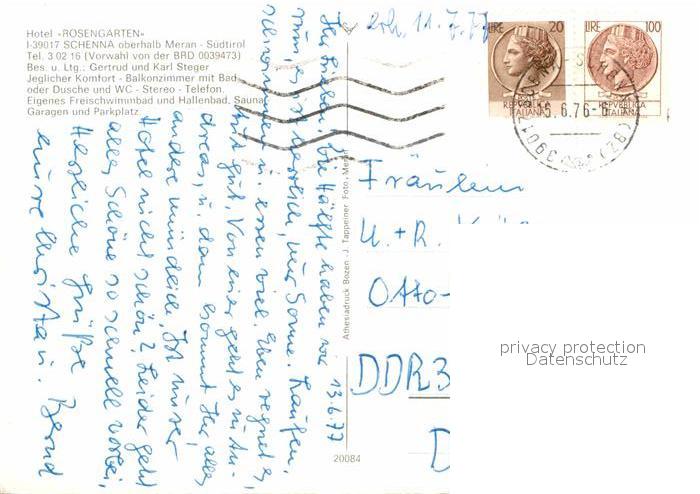 Hotel «ROSENGARTEN»
I-39017 SCHENNA oberhalb Meran - Südtirol
Tel. 3 02 16 (Vorwahl von der BRD 0039473)
Bes. u. Ltg.: Gertrud und Karl Steger
Jeglicher Komfort - Balkonzimmer mit Bad
oder Dusche und WC - Stereo - Telefon.
Eigenes Freischwimmbad und Hallenbad, Sauna,
Garagen und Parkplatz
erh. 11.7.77
LIRE 20
REPVBBLICA
ITALIANA
LIRE 100
REPVBBLICA
ITALIANA
(BZ) 39017
13.6.77
Ihr Lieben! Die Hälfte haben wir
rum, es ist herrlich, nur Sonne. Laufen,
schwimmen u. essen viel. Eben regnet es,
tut gut. Von hier geht es in
u. dann kommt Ihr, alles
andere mündlich. Ist unser
Hotel nicht schön? Leider geht
alles Schöne so schnell vorbei.
Herzliche Grüße
Eure Christa u. Bernd
Athesiadruck Bozen - J. Tappeiner Foto, Meran
20084
Fräulein
U. + R.
Otto-
DDR 3
D
privacy protection
Datenschutz